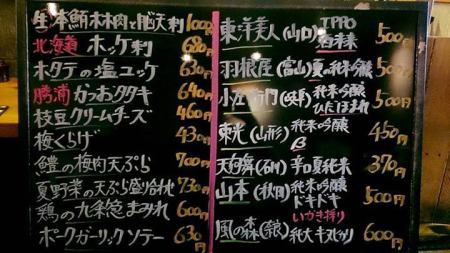 生本鮪
北海道 ホッケ刺 680円
ホタテの塩ユッケ 630円
勝浦 かつおタタキ 640円
枝豆クリームチーズ 460円
梅くらげ 430円
鱧の梅肉天ぷら 700円
夏野菜の天ぷら盛合わせ 730円
鶏の九条葱まみれ 600円
ポークガーリックソテー 630円
東洋美人(山口) IPPO 500円
羽根屋(富山) 夏の純米吟醸 500円
小左衛門(岐阜) 純米吟醸 ひだほまれ 500円
東光(山形) 純米吟醸 450円
天狗舞(石川) 辛口夏純米 370円
山本(秋田) 純米吟醸 ドキドキ 500円
いかき採り
風の森 純大 キヌヒカリ 600円